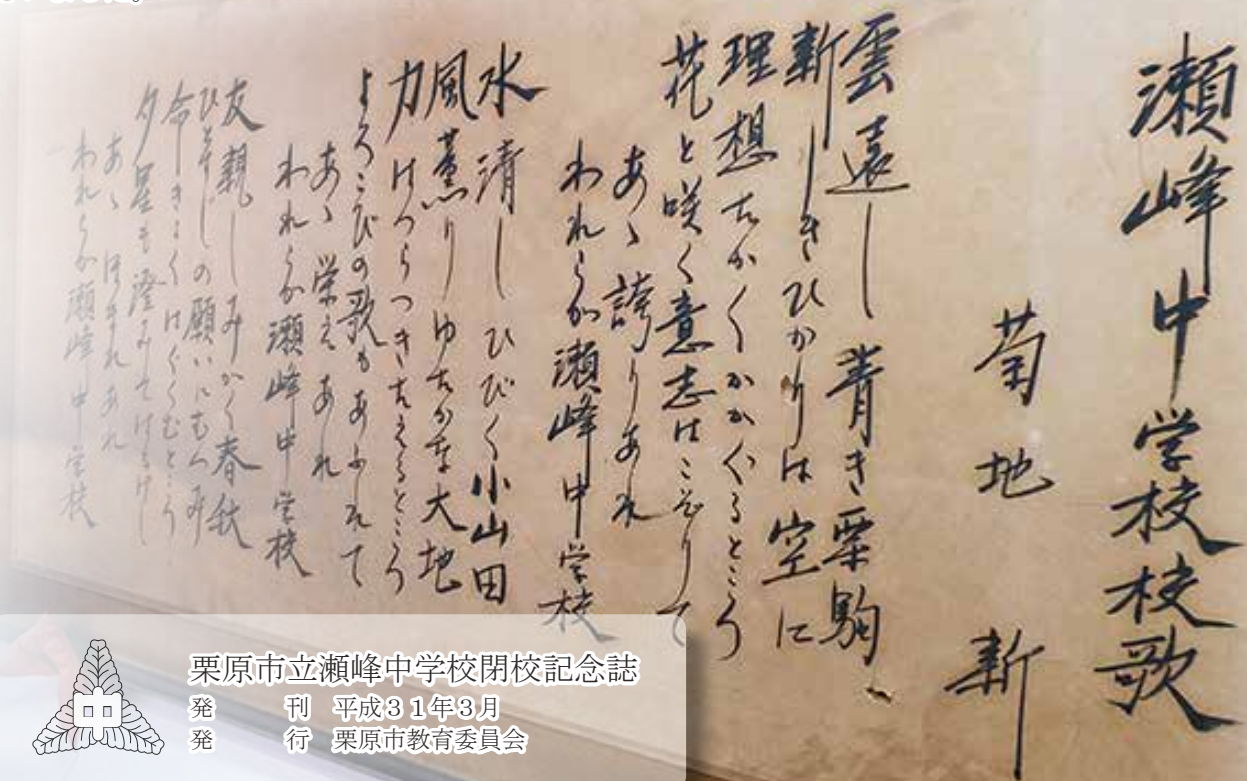 瀬峰中学校校歌
菊地 新
雲遠し 青き栗駒
新しきひかりは空に
理想たかくかかぐるところ
花と咲く意志はこぞりて
あゝ 誇りあれ
われらが瀬峰中学校
水清し ひびく小山田
風薫り ゆたかな大地
力はつらつきたえるところ
よろこびの歌もあふれて
あゝ 栄えあれ
われらが瀬峰中学校
友親しみかく春秋
の願いに
命きよくはぐくむところ
夕星も澄みてはるけし
あゝ ほまれあれ
われらが瀬峰中学校
栗原市立瀬峰中学校閉校記念誌
発 刊 平成31年3月
発 行 栗原市教育委員会